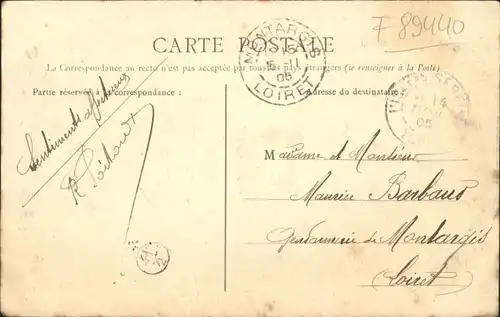 F 89440
CARTE POSTALE
La Correspondance au recto n'est pas acceptée par tous les pays étrangers (se renseigner à la Poste)
Partie réservée à la correspondance :
Adresse du destinataire :
MONTARGIS
15-11
05
LOIRET
14
05
Sentiments affectueux
Madame et Monsieur
Maurice Barbaus
Gendarmerie de Montargis
Loiret